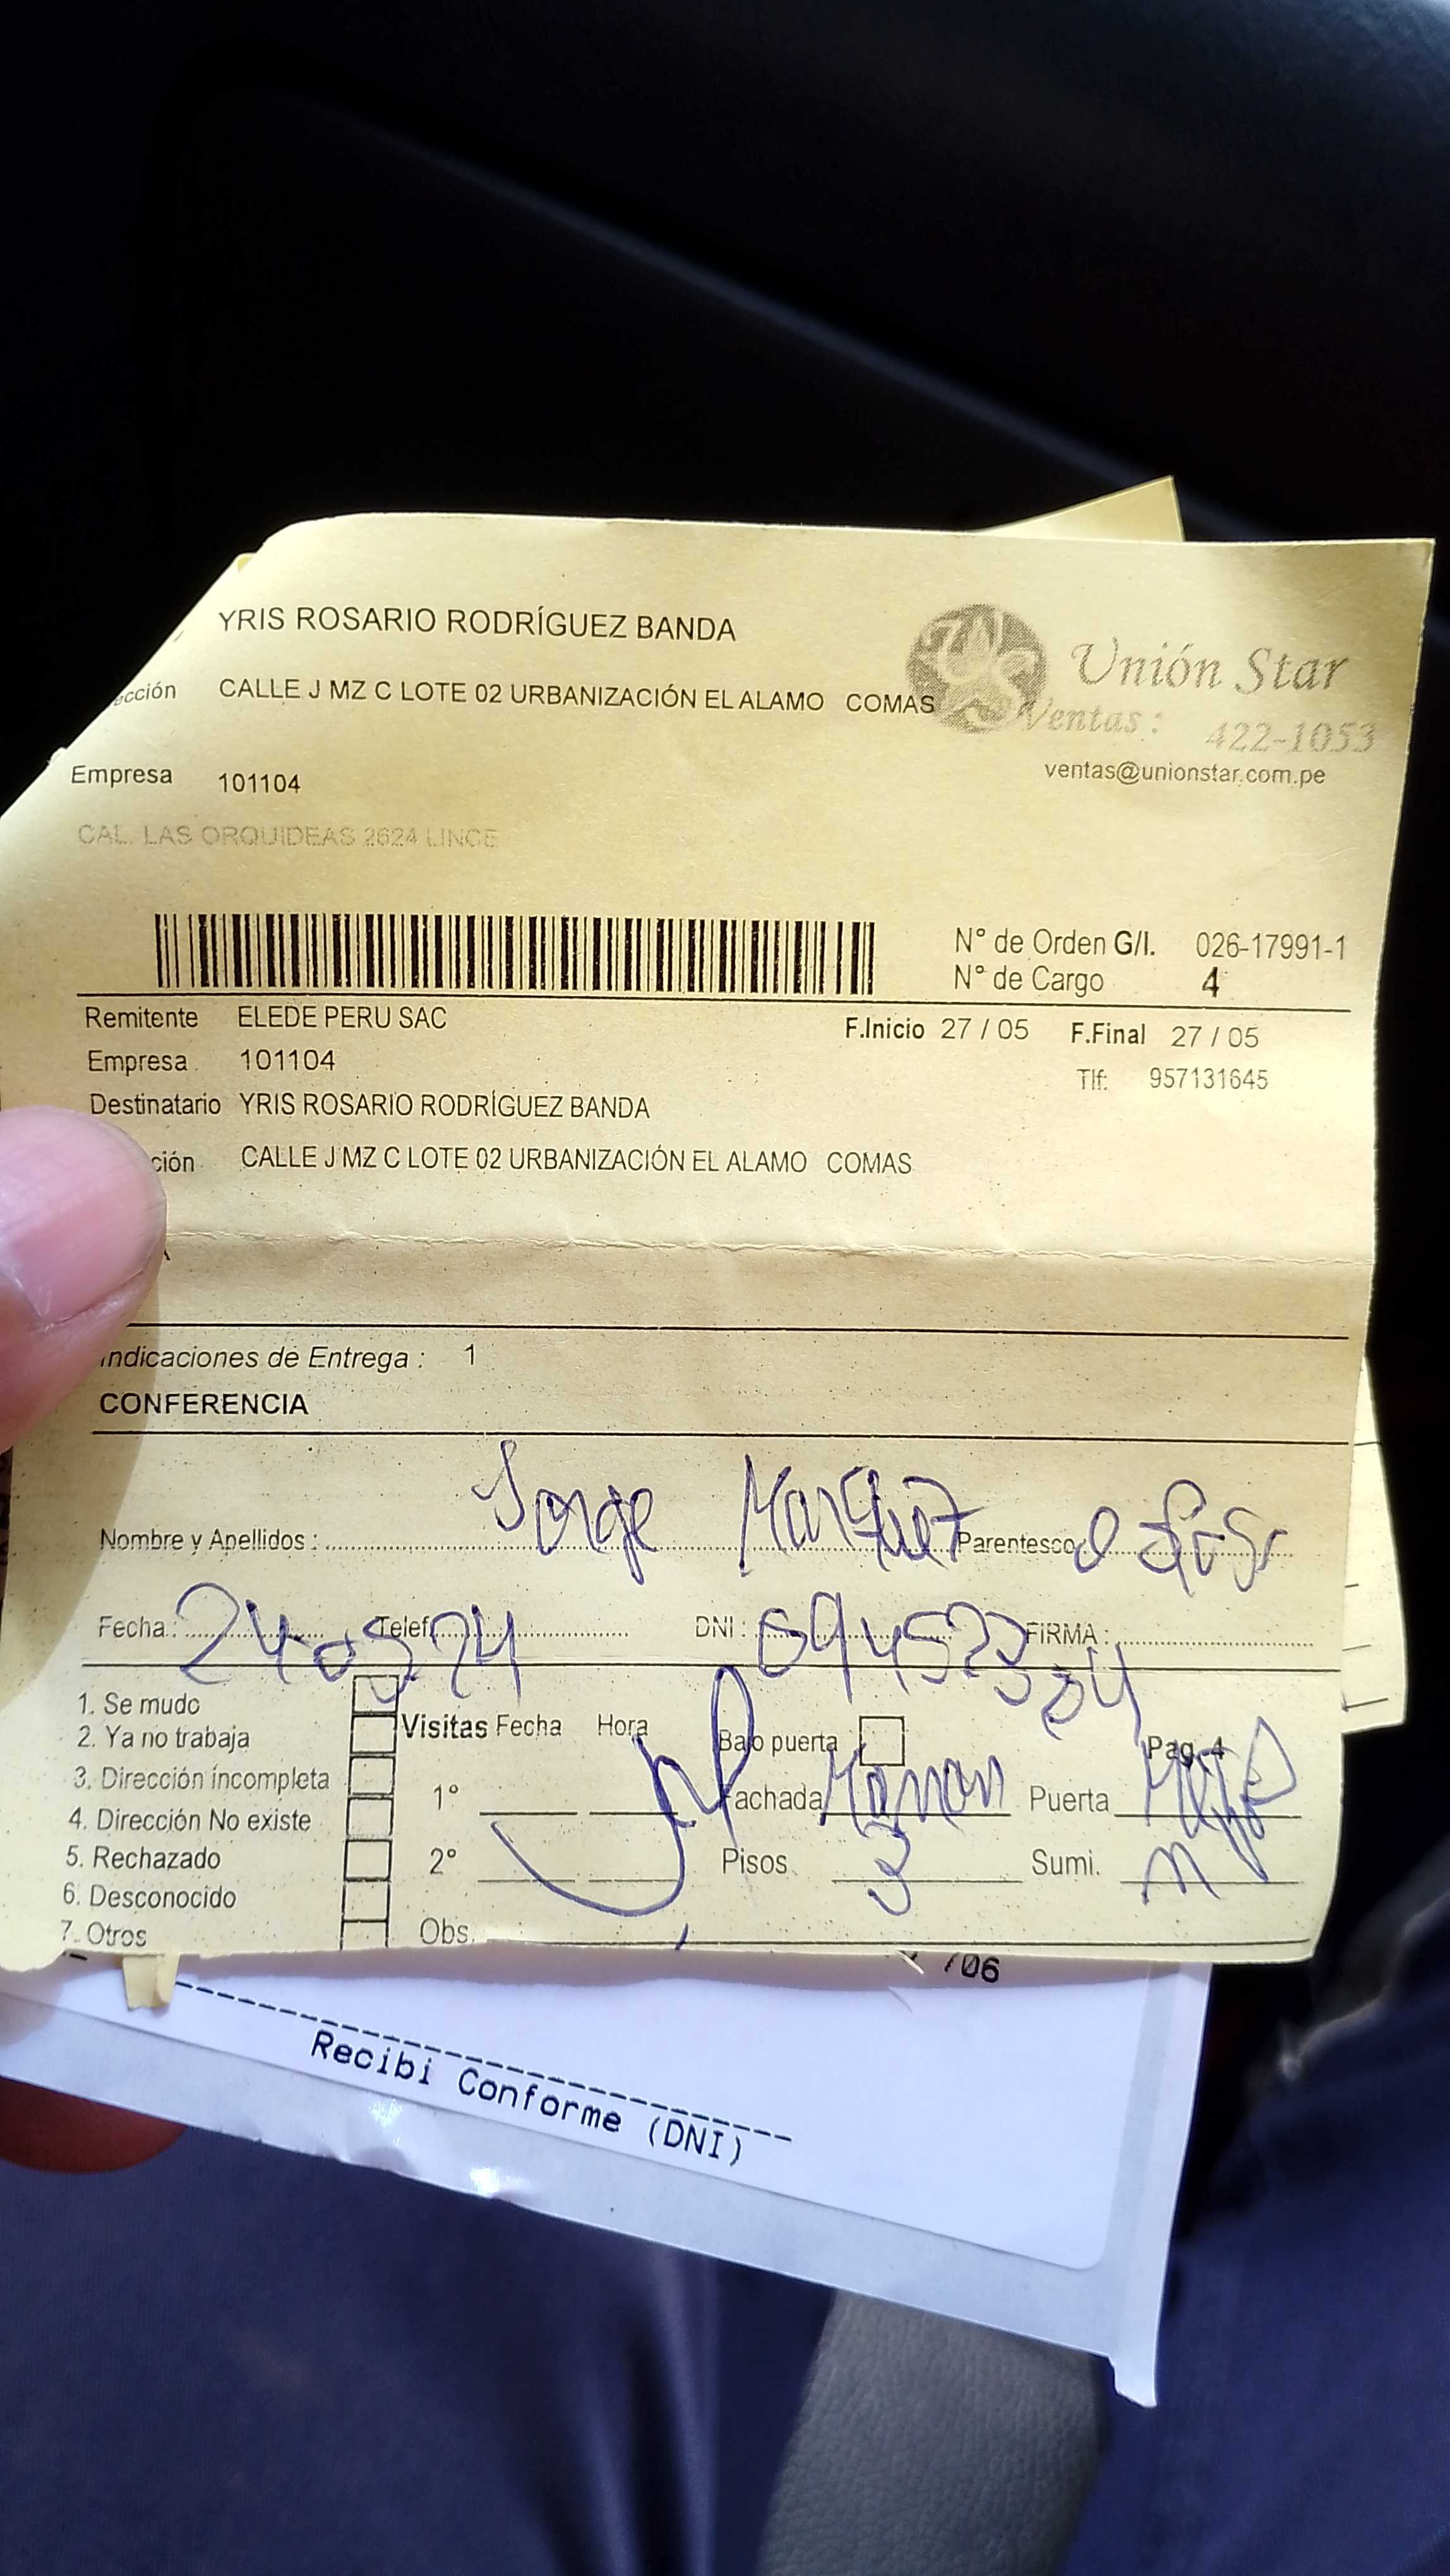 YRIS ROSARIO RODRÍGUEZ BANDA
ección CALLE J MZ C LOTE 02 URBANIZACIÓN EL ALAMO COMAS
Unión Star
Ventas : 422-1053
ventas@unionstar.com.pe
Empresa 101104
CAL. LAS ORQUIDEAS 2624 LINCE
N° de Orden G/I. 026-17991-1
N° de Cargo 4
Remitente ELEDE PERU SAC
F.Inicio 27 / 05 F.Final 27 / 05
Empresa 101104
Tlf: 957131645
Destinatario YRIS ROSARIO RODRÍGUEZ BANDA
ción CALLE J MZ C LOTE 02 URBANIZACIÓN EL ALAMO COMAS
Indicaciones de Entrega : 1
CONFERENCIA
Nombre y Apellidos : Jorge Marquez Parentesco
Fecha : Telef. DNI : FIRMA :
1. Se mudo
2. Ya no trabaja
3. Dirección incompleta
4. Dirección No existe
5. Rechazado
6. Desconocido
7. Otros
Visitas Fecha Hora Bajo puerta Pag. 4
1° Fachada Puerta
2° Pisos 3 Sumi.
Obs.
/06
Recibi Conforme (DNI)